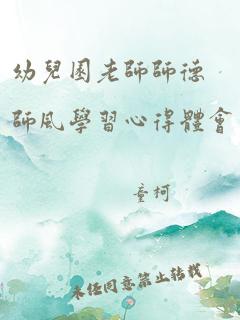 幼兒園老師師德
師風學習心得體會
童柯
未经同意禁止转载